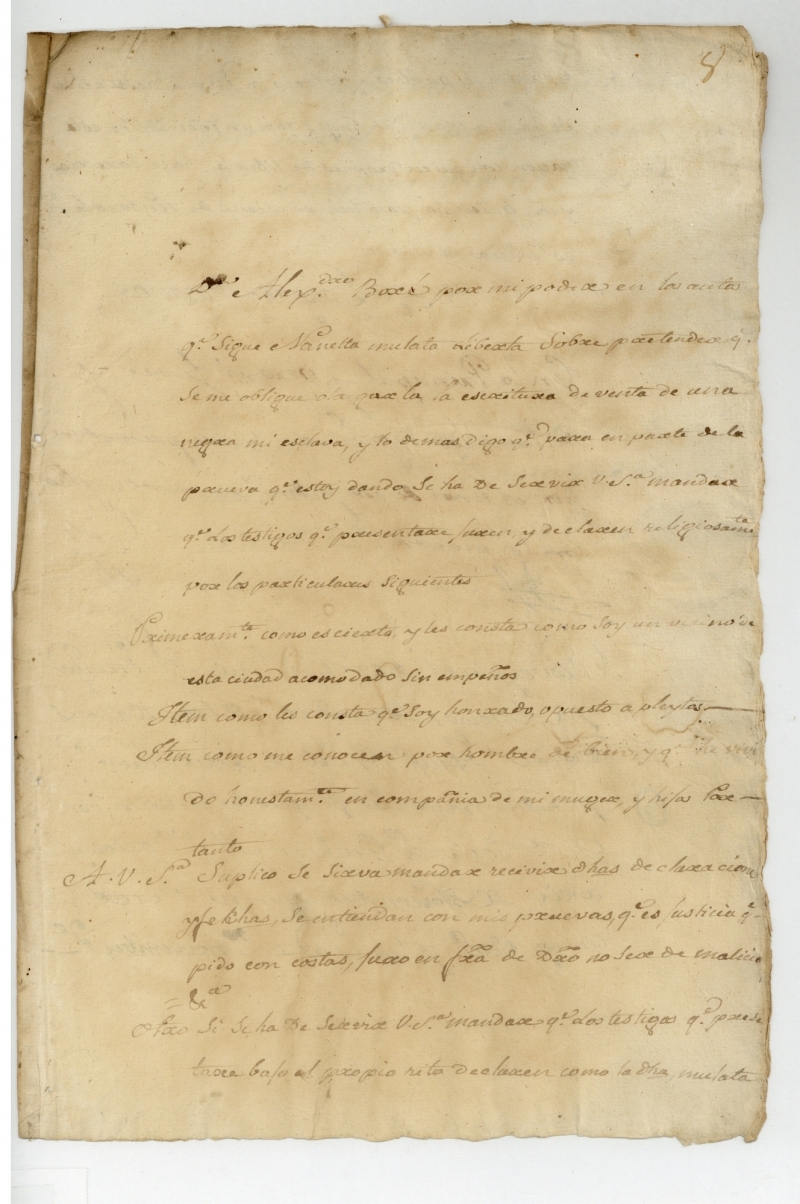 8
Dn Alexdro Boré por mi poder en los autos
qe. Sigue Nanetta mulata liberta Sobre pretender qe.
Se me obligue otorgarla la escritura de venta de una
negra mi esclava, y lo demas digo qe. para en parte de la
prueva qe. estoy dando Se ha De Servir V. Sa. mandar
qe. dos testigos qe. presentare juren, y declaren religiosamte.
por los particulares Siguientes
Primeramte. como es cierto, y les consta como Soy un vecino de
esta ciudad acomodado Sin empeños
Item como les consta qe. Soy honrado, opuesto a pleytos
Item como me conocen por hombre de bien, y qe. he vivi
do honestamte. en compañia de mi muger, y hijos Por
tanto
A. V. Sa. Suplico Se Sirva mandar recivir dhas declaraciones
y fekhas, Se entiendan con mis pruevas, qe. es justicia qe.
pido con costas, juro en fxã de Dxõ no Ser de malicia
= &a
Otro Si Se ha De Servir V. Sa. mandar qe. dos testigos qe. prese
tare bajo el propio rito declaren como la dha, mulata